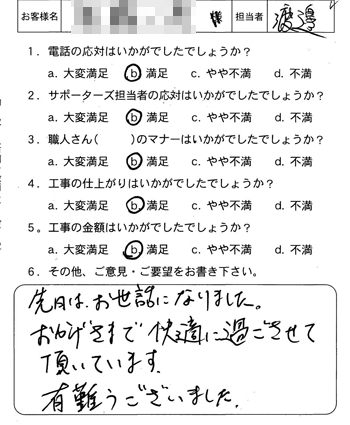 お客様名 様 担当者 渡邉
1. 電話の応対はいかがでしたでしょうか?
a. 大変満足 b. 満足 c. やや不満 d. 不満
2. サポーターズ担当者の応対はいかがでしたでしょうか?
a. 大変満足 b. 満足 c. やや不満 d. 不満
3. 職人さん( )のマナーはいかがでしたでしょうか?
a. 大変満足 b. 満足 c. やや不満 d. 不満
4. 工事の仕上がりはいかがでしたでしょうか?
a. 大変満足 b. 満足 c. やや不満 d. 不満
5. 工事の金額はいかがでしたでしょうか?
a. 大変満足 b. 満足 c. やや不満 d. 不満
6. その他、ご意見・ご要望をお書き下さい。
先日は、お世話になりました。
おかげさまで快適に過ごさせて
頂いています。
有難うございました。